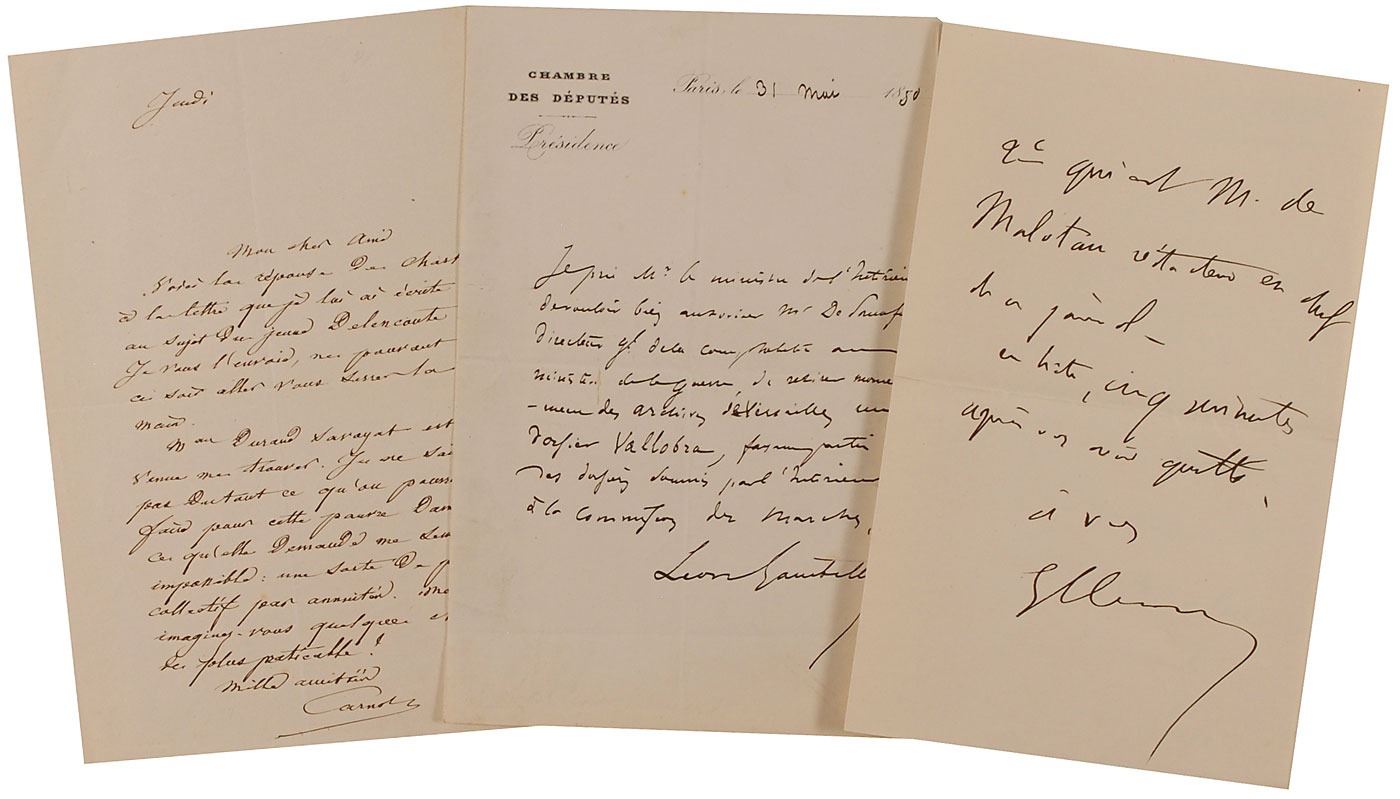 Jeudi
Mon cher Ami
Voici la réponse de Chast
à la lettre que je lui ai écrite
au sujet du jeune Delencoute
Je vous l'envoie, ne pouvant
ce soir aller vous serrer la
main.
Mme Durand Savoyat est
venue me trouver. Je ne sai
pas du tout ce qu'on pourr
faire pour cette pauvre Dam
ce qu'elle demande me sem
impossible : une sorte de p
collectif par annuités.
imaginez-vous quelque c
de plus praticable ?
Mille amitiés
Carnot
CHAMBRE
DES DÉPUTÉS
Présidence
Paris, le 31 Mai 1880
Je prie Mr le ministre de l'Intérieu
de vouloir bien autoriser Mr De
Directeur gl de la comptabilité au
ministère de la guerre, de retirer mome
-ment des archives de Versailles un
dossier Vallobra, faisant partie
des dossiers soumis par l'Intérieur
à la commission des Marchés,
Léon Gambett
qui est M. de
Malotau rédacteur en chef
du journal
en hâte, cinq minutes
après vous avoir quitté,
à vous